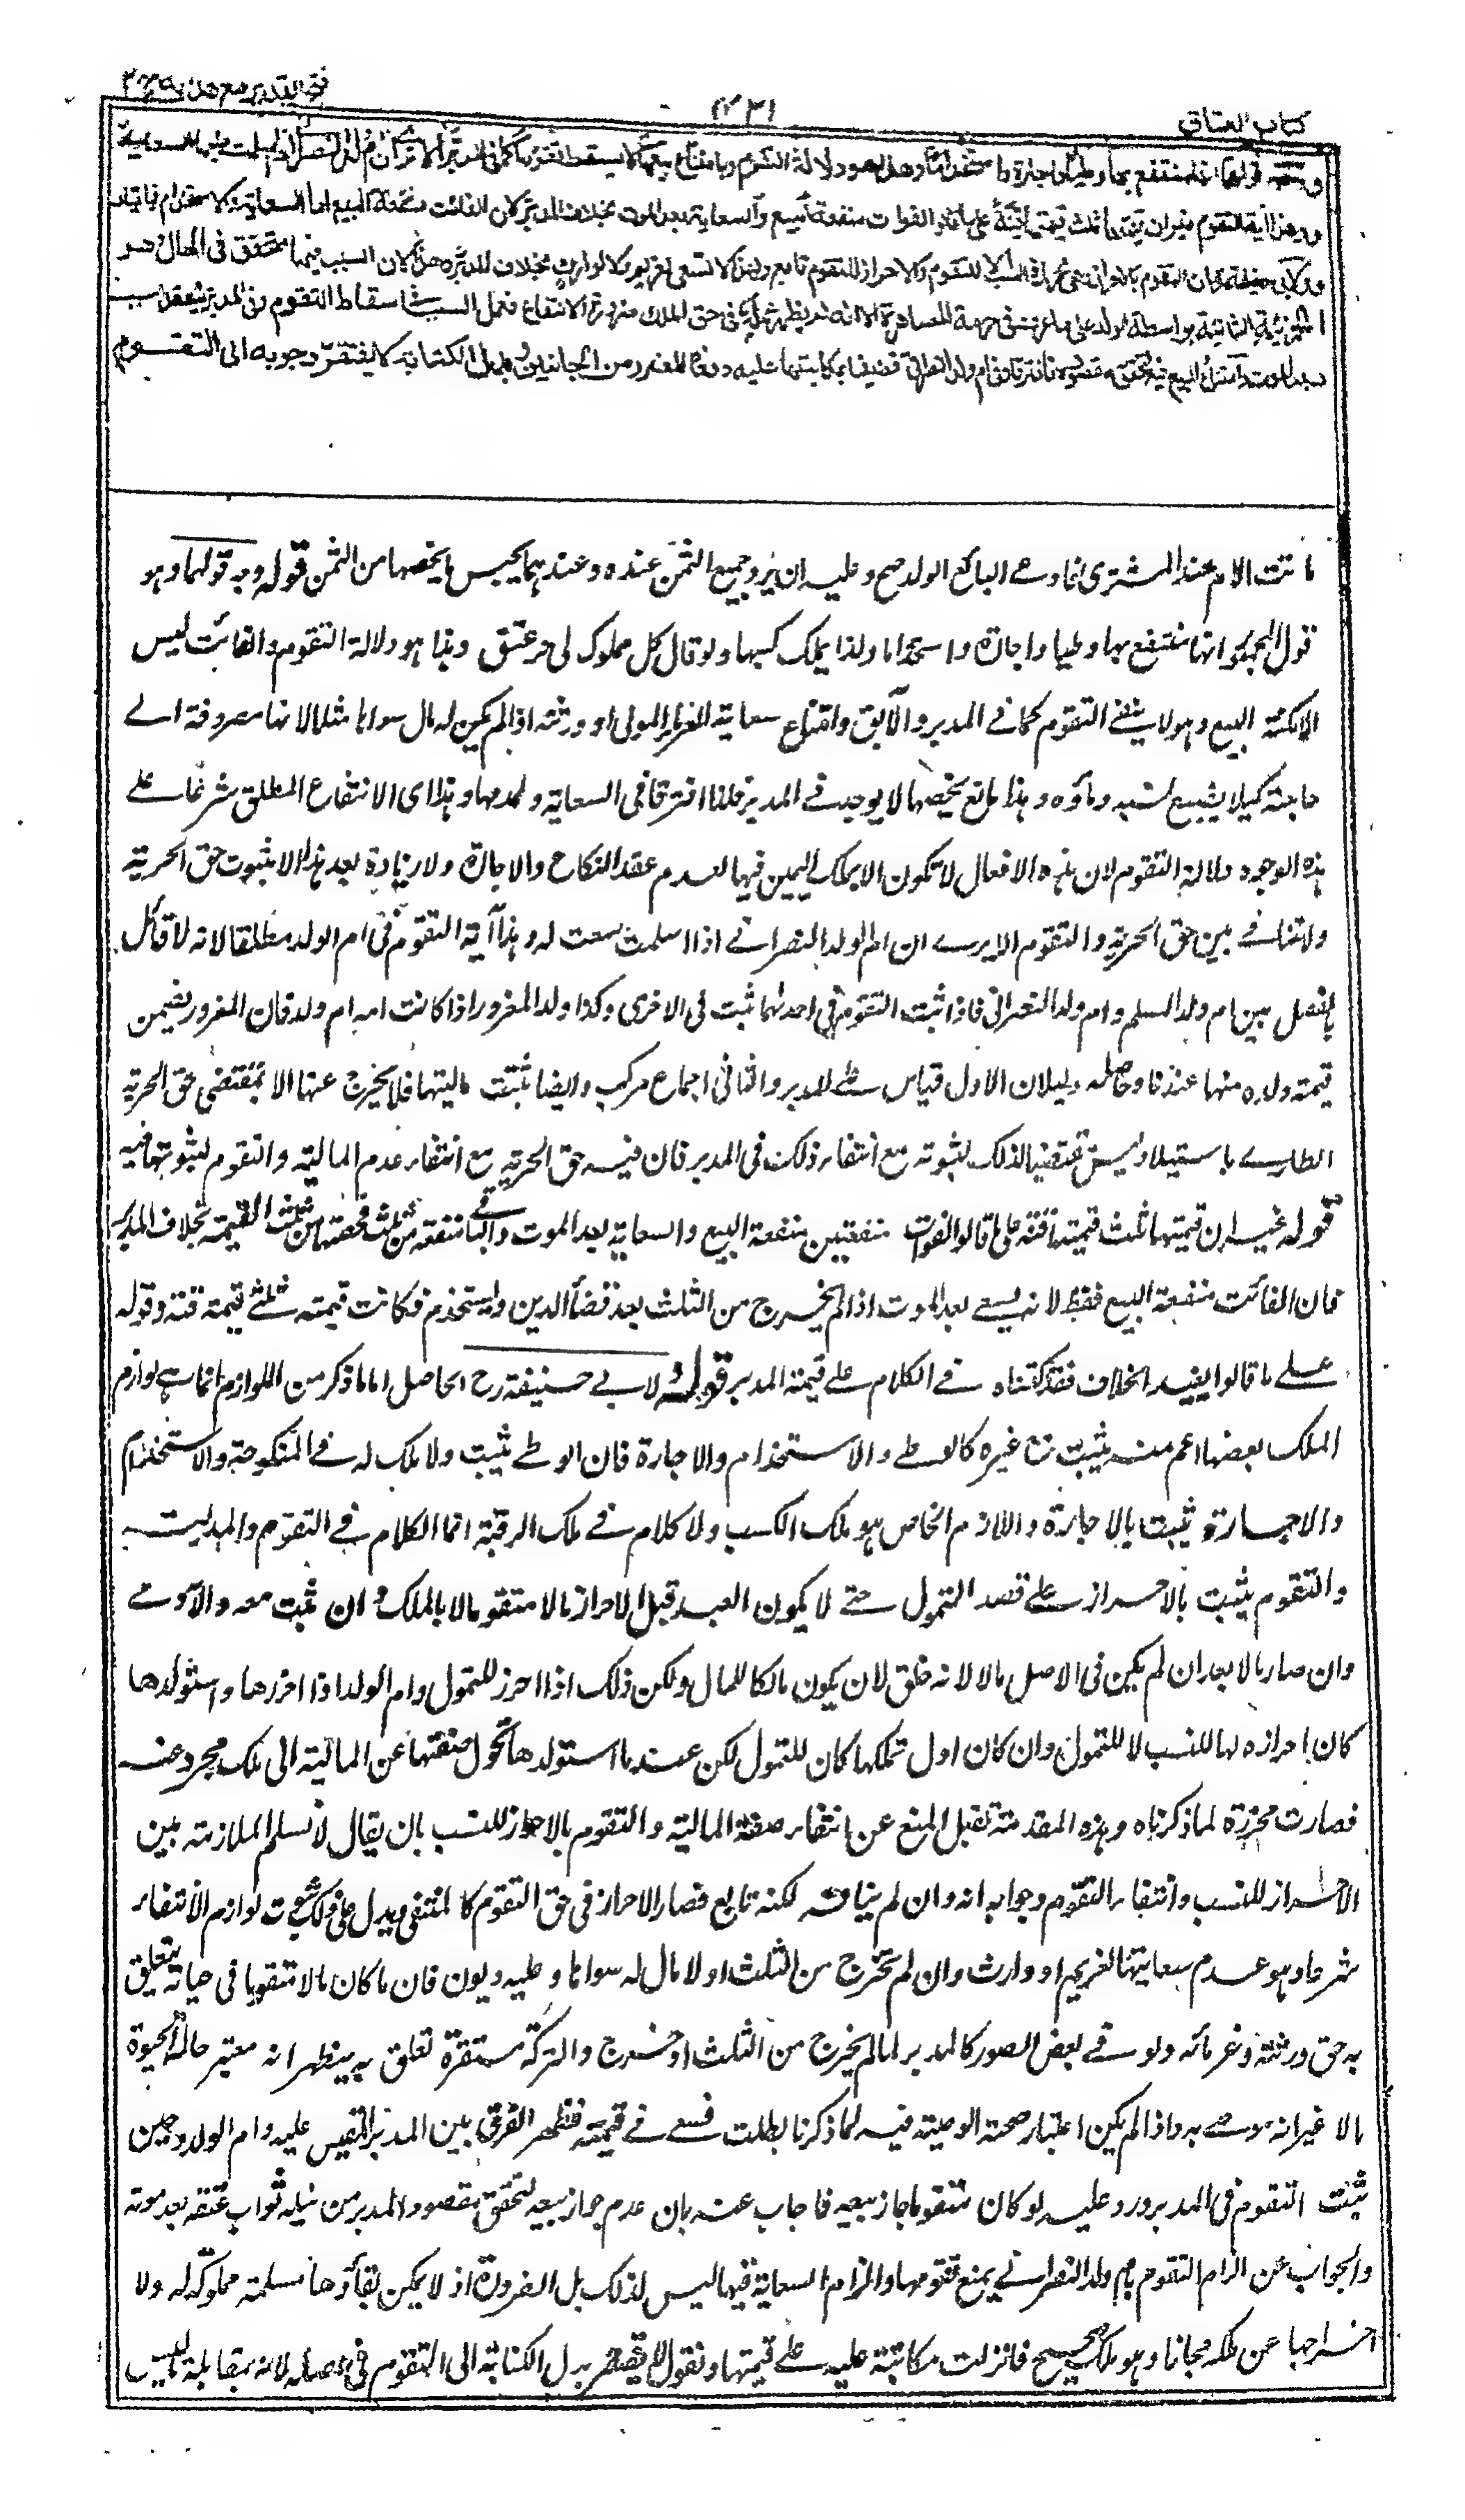 كتاب العتاق
٤٣١
فتح القدير مع هدايه
وجه قولهما انها منتفع بها وطيا واجارة واستخداما وهذا هو دلالة التقوم وبامتناع بيعها لا يسقط تقومها كما فى المدبر الا ترى ان ام ولد النصرانى اذا اسلمت عليها السعاية
وهذا آية التقوم غير ان قيمتها ثلث قيمتها قنة على ما قالوا لفوات منفعة البيع والسعاية بعد الموت بخلاف المدبر لان الفائت منفعة البيع اما السعاية والاستخدام فباقيان
ولابى حنيفة ان التقوم بالاحراز وهى محرزة للنسب لا للتقوم والاحراز للتقوم تابع ولهذا لا تسعى لغريم ولا لوارث بخلاف المدبر وهذا لان السبب فيها متحقق فى الحال وهو
الجزئية الثابتة بواسطة الولد على ما عرف فى حرمة المصاهرة الا انه لم يظهر عمله فى حق الملك ضرورة الانتفاع فعمل السبب فى اسقاط التقوم وفى المدبر ينعقد السبب
بعد الموت وامتناع البيع فيه لتحقيق مقصوده فافترقا وفى ام ولد النصرانى قضينا بمكاتبتها عليه دفعا للضرر من الجانبين وبدل الكتابة لا يفتقر وجوبه الى التقوم
ماتت الام عند المشترى فادعى البائع الولد صح وعليه ان يرد جميع الثمن عنده وعندهما يحبس ما يخصها من الثمن قوله وجه قولهما وهو
قول الجمهور انها منتفع بها وطيا واجارة واستخداما ولذا يملك كسبها ولو قال كل مملوك لى حر عتق وهذا هو دلالة التقوم والفائت ليس
الا مكنة البيع وهو لا ينفى التقوم كما فى المدبر والآبق وامتناع سعاية الغرماء المولى او ورثته اذا لم يكن له مال سواها مثلا لانها مصروفة الى
حاجته كيلا يضيع نسبه وماؤه وهذا مانع يخصها لا يوجد فى المدبر فلذا افترقا فى السعاية وعدمها وهذا اى الانتفاع المطلق شرعا على
هذه الوجوه دلالة التقوم لان هذه الافعال لا تكون الا بملك اليمين فيها لعدم عقد النكاح والاجارة ولا زيادة بعد هذا الا بثبوت حق الحرية
ولا تنافى بين حق الحرية والتقوم الا يرى ان ام الولد النصرانى اذا اسلمت سعت له وهذا آية التقوم فى ام الولد مطلقا لانه لا قائل
بالفصل بين ام ولد المسلم وام ولد النصرانى فاذا ثبت التقوم فى احدهما ثبت فى الاخرى وكذا ولد المغرور اذا كانت امه ام ولد فان المغرور يضمن
قيمة ولده منها عندنا وحاصله دليلان الاول قياس على المدبر والثانى اجماع مركب وايضا ثبتت ماليتها فلا يخرج عنها الا بمقتضى حق الحرية
الطارى باستيلاد وليس مقتضيا لذلك لثبوته مع انتفاء ذلك فى المدبر فان فيه حق الحرية مع انتفاء عدم المالية والتقوم لثبوتهما فيه
قوله غير ان قيمتها ثلث قيمتها قنة على ما قالوا لفوات منفعتين منفعة البيع والسعاية بعد الموت والباقى منفعة من ثلث فحصتها من ثلث القيمة بخلاف المدبر
فان الفائت منفعة البيع فقط لانه يسعى بعد الموت اذا لم يخرج من الثلث بعد قضاء الدين ويستخدم فكانت قيمته ثلثى قيمة قنة وقوله
على ما قالوا يفيد الخلاف فقد كتبناه فى الكلام على قيمة المدبر قوله لابى حنيفة رح الحاصل اما ما ذكر من اللوازم انما هى لوازم
الملك بعضها اعم منه يثبت مع غيره كالوطى والاستخدام والاجارة فان الوطى يثبت ولا ملك له فى المنكوحة والاستخدام
والاجارة يثبت بالاجارة واللازم الخاص هو ملك الكسب ولا كلام فى ملك الرقبة انما الكلام فى التقوم والمالية
والتقوم يثبت بالاحراز على قصد التمول حتى لا يكون العبد قبل الاحراز مالا متقوما لا بالملك وان ثبت معه والآدمى
وان صار مالا بعد ان لم يكن فى الاصل مالا لانه خلق لان يكون مالكا للمال ولكن ذلك اذا احرز للتمول وام الولد اذا احرزها واستولدها
كان احرازه لها للنسب لا للتمول وان كان اول تملكها كان للتمول لكن عند ما استولدها تحول صفتها عن المالية الى ملك مجرد عنه
فصارت محرزة لما ذكرناه وهذه المقدمة تقبل المنع عن انتفاء صفة المالية والتقوم بالاحراز للنسب بان يقال لا نسلم الملازمة بين
الاحراز للنسب وانتفاء التقوم وجوابه انه وان لم ينافه لكنه تابع فصار الاحراز فى حق التقوم كالمنتفى ويدل على ذلك ثبوت لوازم الانتفاء
شرعا وهو عدم سعايتها لغريم او وارث وان لم تخرج من الثلث او لا مال له سواها وعليه ديون فان ما كان مالا متقوما فى حياته يتعلق
به حق ورثته وغرمائه ولو فى بعض الصور كالمدبر لما لم يخرج من الثلث او خرج والتركة مستغرقة تعلق به يظهر انه معتبر حالة الحيوة
مالا غير انه موصى به واذا لم يكن اعتبار صحة الوصية فيه لما ذكرنا بطلت فسعى فى قيمته فظهر الفرق بين المدبر المقيس عليه وام الولد وحين
ثبت التقوم فى المدبر ورد عليه لو كان متقوما جاز بيعه فاجاب عنه بان عدم جواز بيعه لتحقق مقصود المدبر من نيله ثواب عتقه بعد موته
والجواب عن الزام التقوم بام ولد النصرانى يمنع تقومها والزام السعاية فيها ليس لذلك بل الضرورة اذ لا يمكن بقاؤها مسلمة مملوكة له ولا
اخراجها عن ملكه مجانا وهو ملك صحيح فانزلت مكاتبة عليه على قيمتها ونقول لا يفتقر بدل الكتابة الى التقوم فى اصله لانه بمقابلة ما ليس